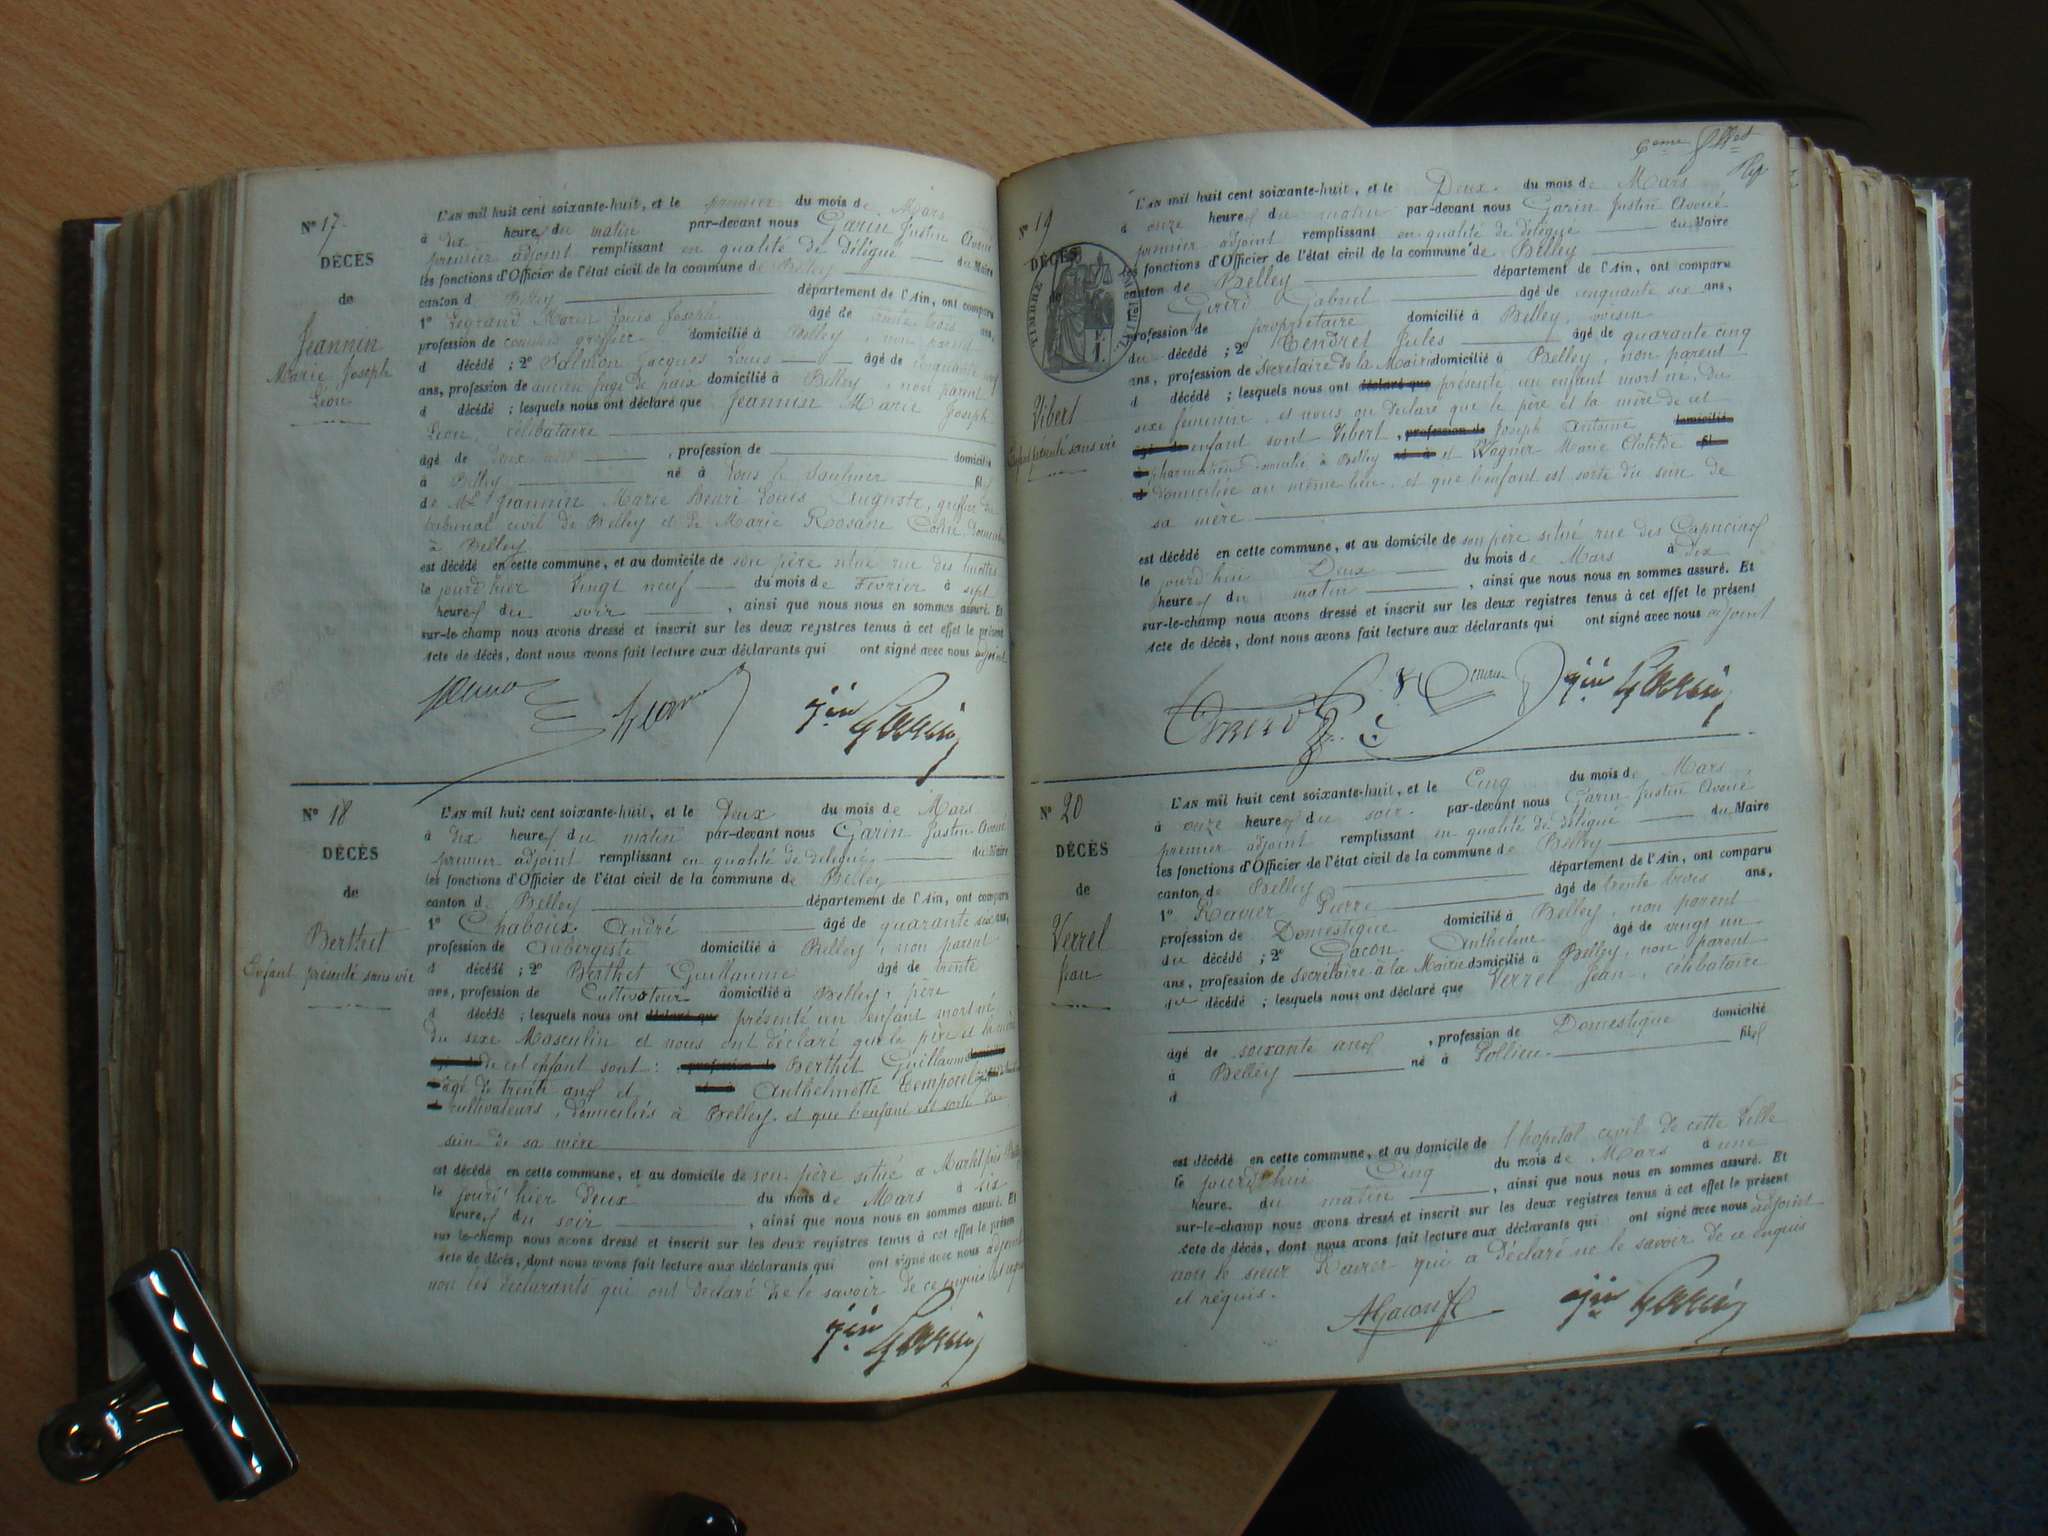 N° 17.
DÉCÈS
de
Jeannin
Marie Joseph
Léon
L'AN mil huit cent soixante-huit, et le premier du mois de Mars
à dix heures du matin par-devant nous Garin Justin Avoué
premier adjoint remplissant en qualité de délégué du Maire
les fonctions d'Officier de l'état civil de la commune de Belley
canton d Belley département de l'Ain, ont comparu
1° Legrand Marie Louis Joseph âgé de trente trois ans,
profession de commis greffier domicilié à Belley, non parent
d décédé ; 2° Salmon Jacques Louis âgé de cinquante
ans, profession de ancien juge de paix domicilié à Belley, non parent
d décédé ; lesquels nous ont déclaré que Jeannin Marie Joseph
Léon, célibataire
âgé de deux mois , profession de domicilié
à Belley né à Lons le Saulnier fils
de Mr Jeannin Marie Henri Louis Auguste, greffier du
tribunal civil de Belley et de Marie Rosane
à Belley
est décédé en cette commune, et au domicile de son père situé rue des
le jourd'hier vingt neuf du mois de Février à sept
heures du soir , ainsi que nous nous en sommes assuré. Et
sur-le-champ nous avons dressé et inscrit sur les deux registres tenus à cet effet le présent
acte de décès, dont nous avons fait lecture aux déclarants qui ont signé avec nous adjoint
jin Garin
N° 18
DÉCÈS
de
Berthet
Enfant présenté sans vie
L'AN mil huit cent soixante-huit, et le Deux du mois de Mars
à dix heures du matin par-devant nous Garin Justin Avoué
premier adjoint remplissant en qualité de délégué du Maire
les fonctions d'Officier de l'état civil de la commune de Belley
canton de Belley département de l'Ain, ont comparu
1° Chaboux André âgé de quarante six ans,
profession de Aubergiste domicilié à Belley, non parent
d décédé ; 2° Berthet Guillaume âgé de trente
ans, profession de Cultivateur domicilié à Belley, père
d décédé ; lesquels nous ont déclaré que présenté un enfant mort né
du sexe Masculin et nous ont déclaré que le père et la mère
de cet enfant sont : profession de Berthet Guillaume
âgé de trente ans et Anthelmette
cultivateurs, domiciliés à Belley, et que l'enfant est sorti du
sein de sa mère
est décédé en cette commune, et au domicile de son père situé a
le jourd'hier deux du mois de Mars à six
heures du soir , ainsi que nous nous en sommes assuré. Et
sur le-champ nous avons dressé et inscrit sur les deux registres tenus à cet effet le présent
acte de décès, dont nous avons fait lecture aux déclarants qui ont signé avec nous adjoint
non les déclarants qui ont déclaré ne le savoir de ce enquis et requis
jin Garin
6eme
N° 19
DÉCÈS
de
Vibert
Enfant présenté sans vie
TIMBRE IMPÉRIAL
L'AN mil huit cent soixante-huit, et le Deux. du mois de Mars
à onze heures du matin par-devant nous Garin Justin Avoué
premier adjoint remplissant en qualité de délégué du Maire
les fonctions d'Officier de l'état civil de la commune de Belley
canton de Belley département de l'Ain, ont comparu
Girerd Gabriel âgé de cinquante six ans,
profession de propriétaire domicilié à Belley, voisin
du décédé ; 2° Tendret Jules âgé de quarante cinq
ans, profession de Secrétaire de la Mairie domicilié à Belley, non parent
d décédé ; lesquels nous ont déclaré que présenté un enfant mort né, du
sexe féminin, et nous on déclaré que le père et la mère de cet
enfant sont Vibert, profession de Joseph Antoine domicilié
pharmacien domicilié à Belley né à et Wagner Marie Clotilde
domiciliée au même lieu, et que l'enfant est sorti du sein de
sa mère
est décédé en cette commune, et au domicile de son père situé rue des Capucins
le jourd'hui Deux du mois de Mars à dix
heures du matin , ainsi que nous nous en sommes assuré. Et
sur-le-champ nous avons dressé et inscrit sur les deux registres tenus à cet effet le présent
acte de décès, dont nous avons fait lecture aux déclarants qui ont signé avec nous adjoint
jin Garin
N° 20
DÉCÈS
de
Verrel
Jean
L'AN mil huit cent soixante-huit, et le Cinq du mois de Mars
à onze heures du soir. par-devant nous Garin Justin Avoué
premier adjoint remplissant en qualité de délégué du Maire
les fonctions d'Officier de l'état civil de la commune de Belley
canton de Belley département de l'Ain, ont comparu
1° Ravier Pierre âgé de trente trois ans,
profession de Domestique domicilié à Belley, non parent
du décédé ; 2° Gacon Anthelme âgé de vingt un
ans, profession de secrétaire à la Mairie domicilié à Belley, non parent
du décédé ; lesquels nous ont déclaré que Verrel Jean, célibataire
âgé de soixante ans , profession de Domestique domicilié
à Belley né à Pollieu fils
d
est décédé en cette commune, et au domicile de l'hopital civil de cette Ville
le jourd'hui Cinq du mois de Mars à une
heure. du matin , ainsi que nous nous en sommes assuré. Et
sur-le-champ nous avons dressé et inscrit sur les deux registres tenus à cet effet le présent
acte de décès, dont nous avons fait lecture aux déclarants qui ont signé avec nous adjoint
non le sieur Ravier qui a déclaré ne le savoir de ce enquis
et réquis.
AGacon
jin Garin